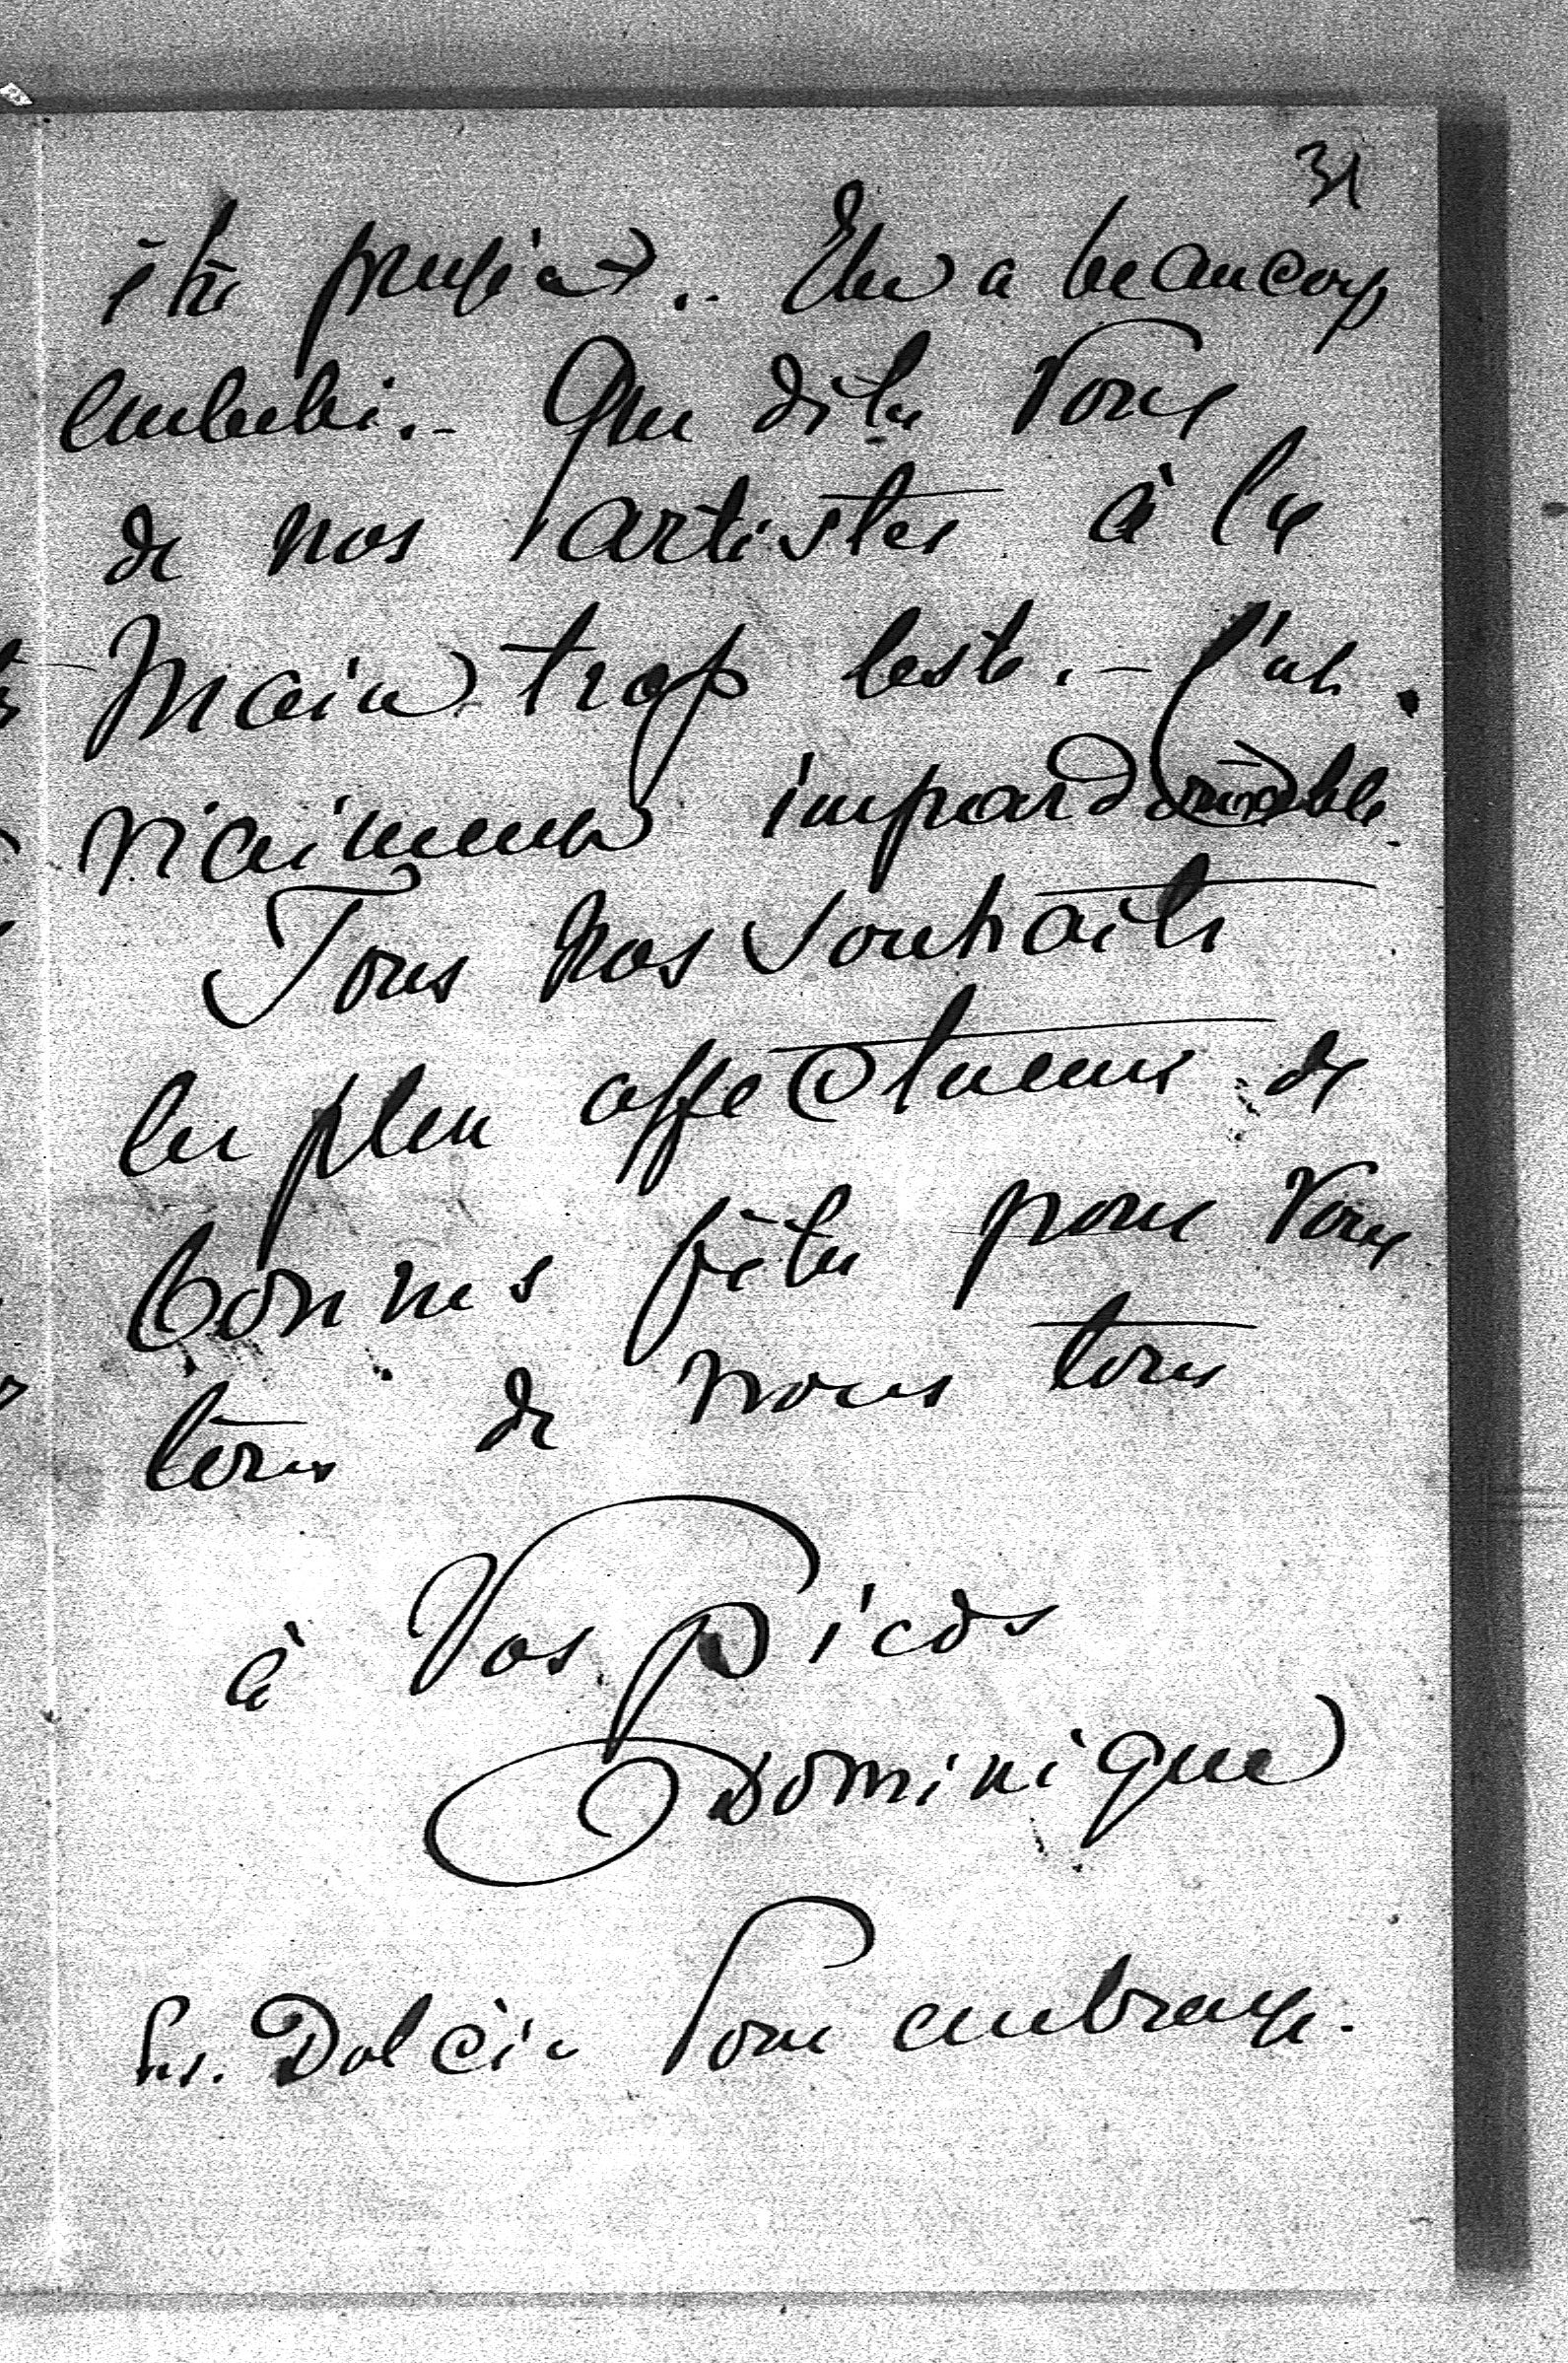 31
être présent.. Elle a beaucoup
embelli.- Que dites vous
de nos artistes à la
main trop leste.- C'est
vraiment impardonnable
Tous nos souhaits
les plus affectueux de
bonnes fêtes pour vous
tous de nous tous
à Vos pieds
Dominique
Dulcie vous embrasse.